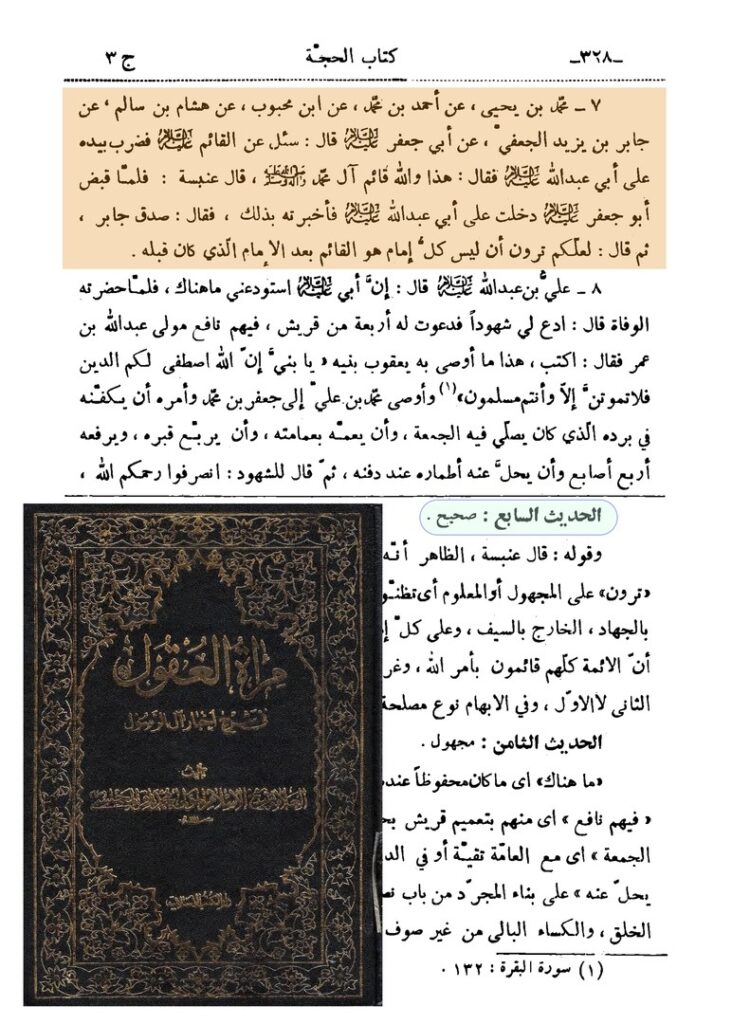 -٣٢٨- كتاب الحجّة ج ٣
٧ ـ محمّد بن يحيى ، عن أحمد بن محمّد ، عن ابن محبوب ، عن هشام بن سالم ، عن
جابر بن يزيد الجعفيّ ، عن أبي جعفر عليه السلام قال : سئل عن القائم عليه السلام فضرب بيده
على أبي عبدالله عليه السلام فقال : هذا والله قائم آل محمّد صلى الله عليه وآله وسلم ، قال عنبسة : فلمّا قبض
أبو جعفر عليه السلام دخلت على أبي عبدالله عليه السلام فأخبرته بذلك ، فقال : صدق جابر ،
ثم قال : لعلّكم ترون أن ليس كلُّ إمام هو القائم بعد الإمام الّذي كان قبله .
٨ ـ عليُّ بن عبدالله عليه السلام قال : إنَّ أبي عليه السلام استودعني ماهناك ، فلمّا حضرته
الوفاة قال : ادع لي شهوداً فدعوت له أربعة من قريش ، فيهم نافع مولى عبدالله بن
عمر فقال : اكتب ، هذا ما أوصى به يعقوب بنيه « يا بنيَّ إنّ الله اصطفى لكم الدين
فلاتموتنَّ إلاّ وأنتم مسلمون»(١) وأوصى محمّد بن عليّ إلى جعفر بن محمّد وأمره أن يكفّنه
في برده الّذي كان يصلّي فيه الجمعة ، وأن يعمّمه بعمامته ، وأن يربّع قبره ، ويرفعه
أربع أصابع وأن يحلَّ عنه أطماره عند دفنه ، ثمّ قال للشهود : انصرفوا رحمكم الله ،
الحديث السابع : صحيح .
وقوله : قال عنبسة ، الظاهر أنّه
«ترون» على المجهول أوالمعلوم أى تظنّو
بالجهاد ، الخارج بالسيف ، وعلى كلّ إ
أنّ الائمة كلّهم قائمون بأمر الله ، وغر
الثانى لاالاوّل ، وفي الابهام نوع مصلحة
الحديث الثامن : مجهول .
«ما هناك» اى ماكان محفوظاً عند
« فيهم نافع » اى منهم بتعميم قريش بح
الجمعة » اى مع العامّة تقيّة أو في الد
يحلّ عنه » على بناء المجرّد من باب نص
الخلق ، والكساء البالى من غير صوف
(١) سورة البقرة : ١٣٢ .
مرآة العقول
في شرح أخبار آل الرسول
تأليف